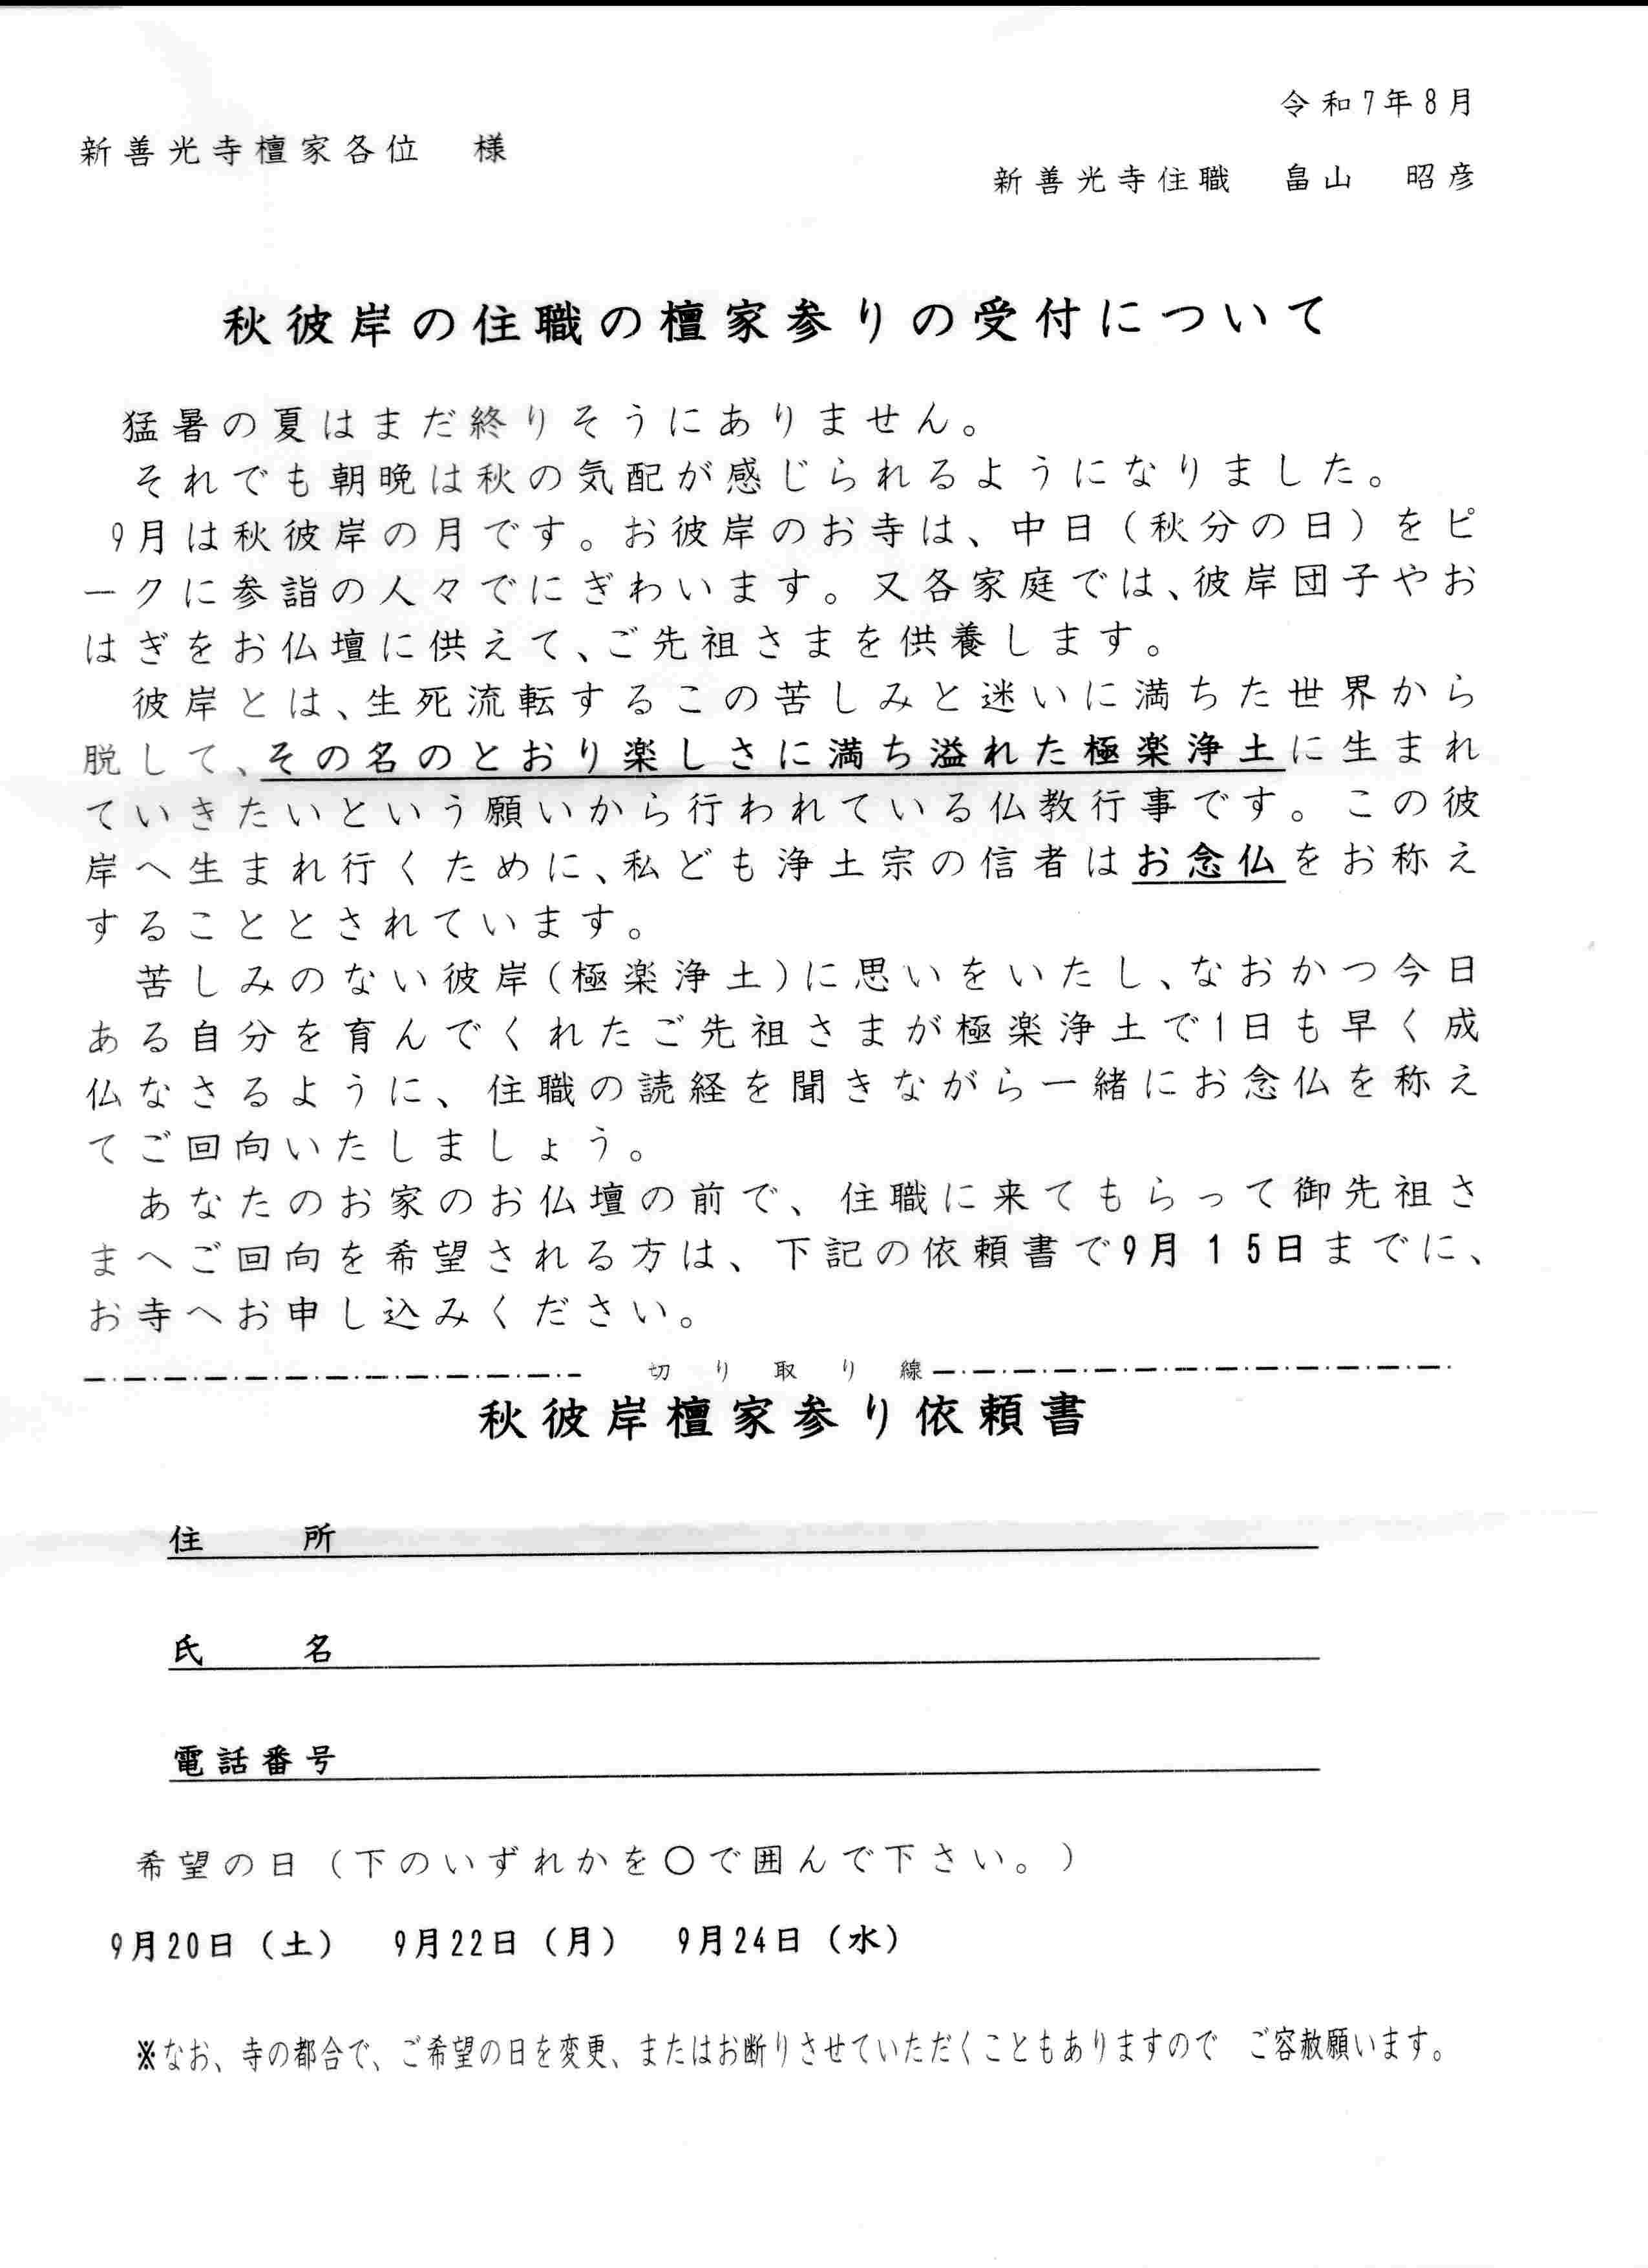 令和7年8月
新善光寺檀家各位　様
新善光寺住職　畠山　昭彦
秋彼岸の住職の檀家参りの受付について
猛暑の夏はまだ終りそうにありません。
それでも朝晩は秋の気配が感じられるようになりました。
9月は秋彼岸の月です。お彼岸のお寺は、中日（秋分の日）をピ
ークに参詣の人々でにぎわいます。又各家庭では、彼岸団子やお
はぎをお仏壇に供えて、ご先祖さまを供養します。
彼岸とは、生死流転するこの苦しみと迷いに満ちた世界から
脱して、その名のとおり楽しさに満ち溢れた極楽浄土に生まれ
ていきたいという願いから行われている仏教行事です。この彼
岸へ生まれ行くために、私ども浄土宗の信者はお念仏をお称え
することとされています。
苦しみのない彼岸(極楽浄土)に思いをいたし、なおかつ今日
ある自分を育んでくれたご先祖さまが極楽浄土で1日も早く成
仏なさるように、住職の読経を聞きながら一緒にお念仏を称え
てご回向いたしましょう。
あなたのお家のお仏壇の前で、住職に来てもらって御先祖さ
まへご回向を希望される方は、下記の依頼書で9月１５日までに、
お寺へお申し込みください。
切り取り線
秋彼岸檀家参り依頼書
住　　所
氏　　名
電話番号
希望の日（下のいずれかを○で囲んで下さい。）
9月20日（土）　9月22日（月）　9月24日（水）
※なお、寺の都合で、ご希望の日を変更、またはお断りさせていただくこともありますので　ご容赦願います。